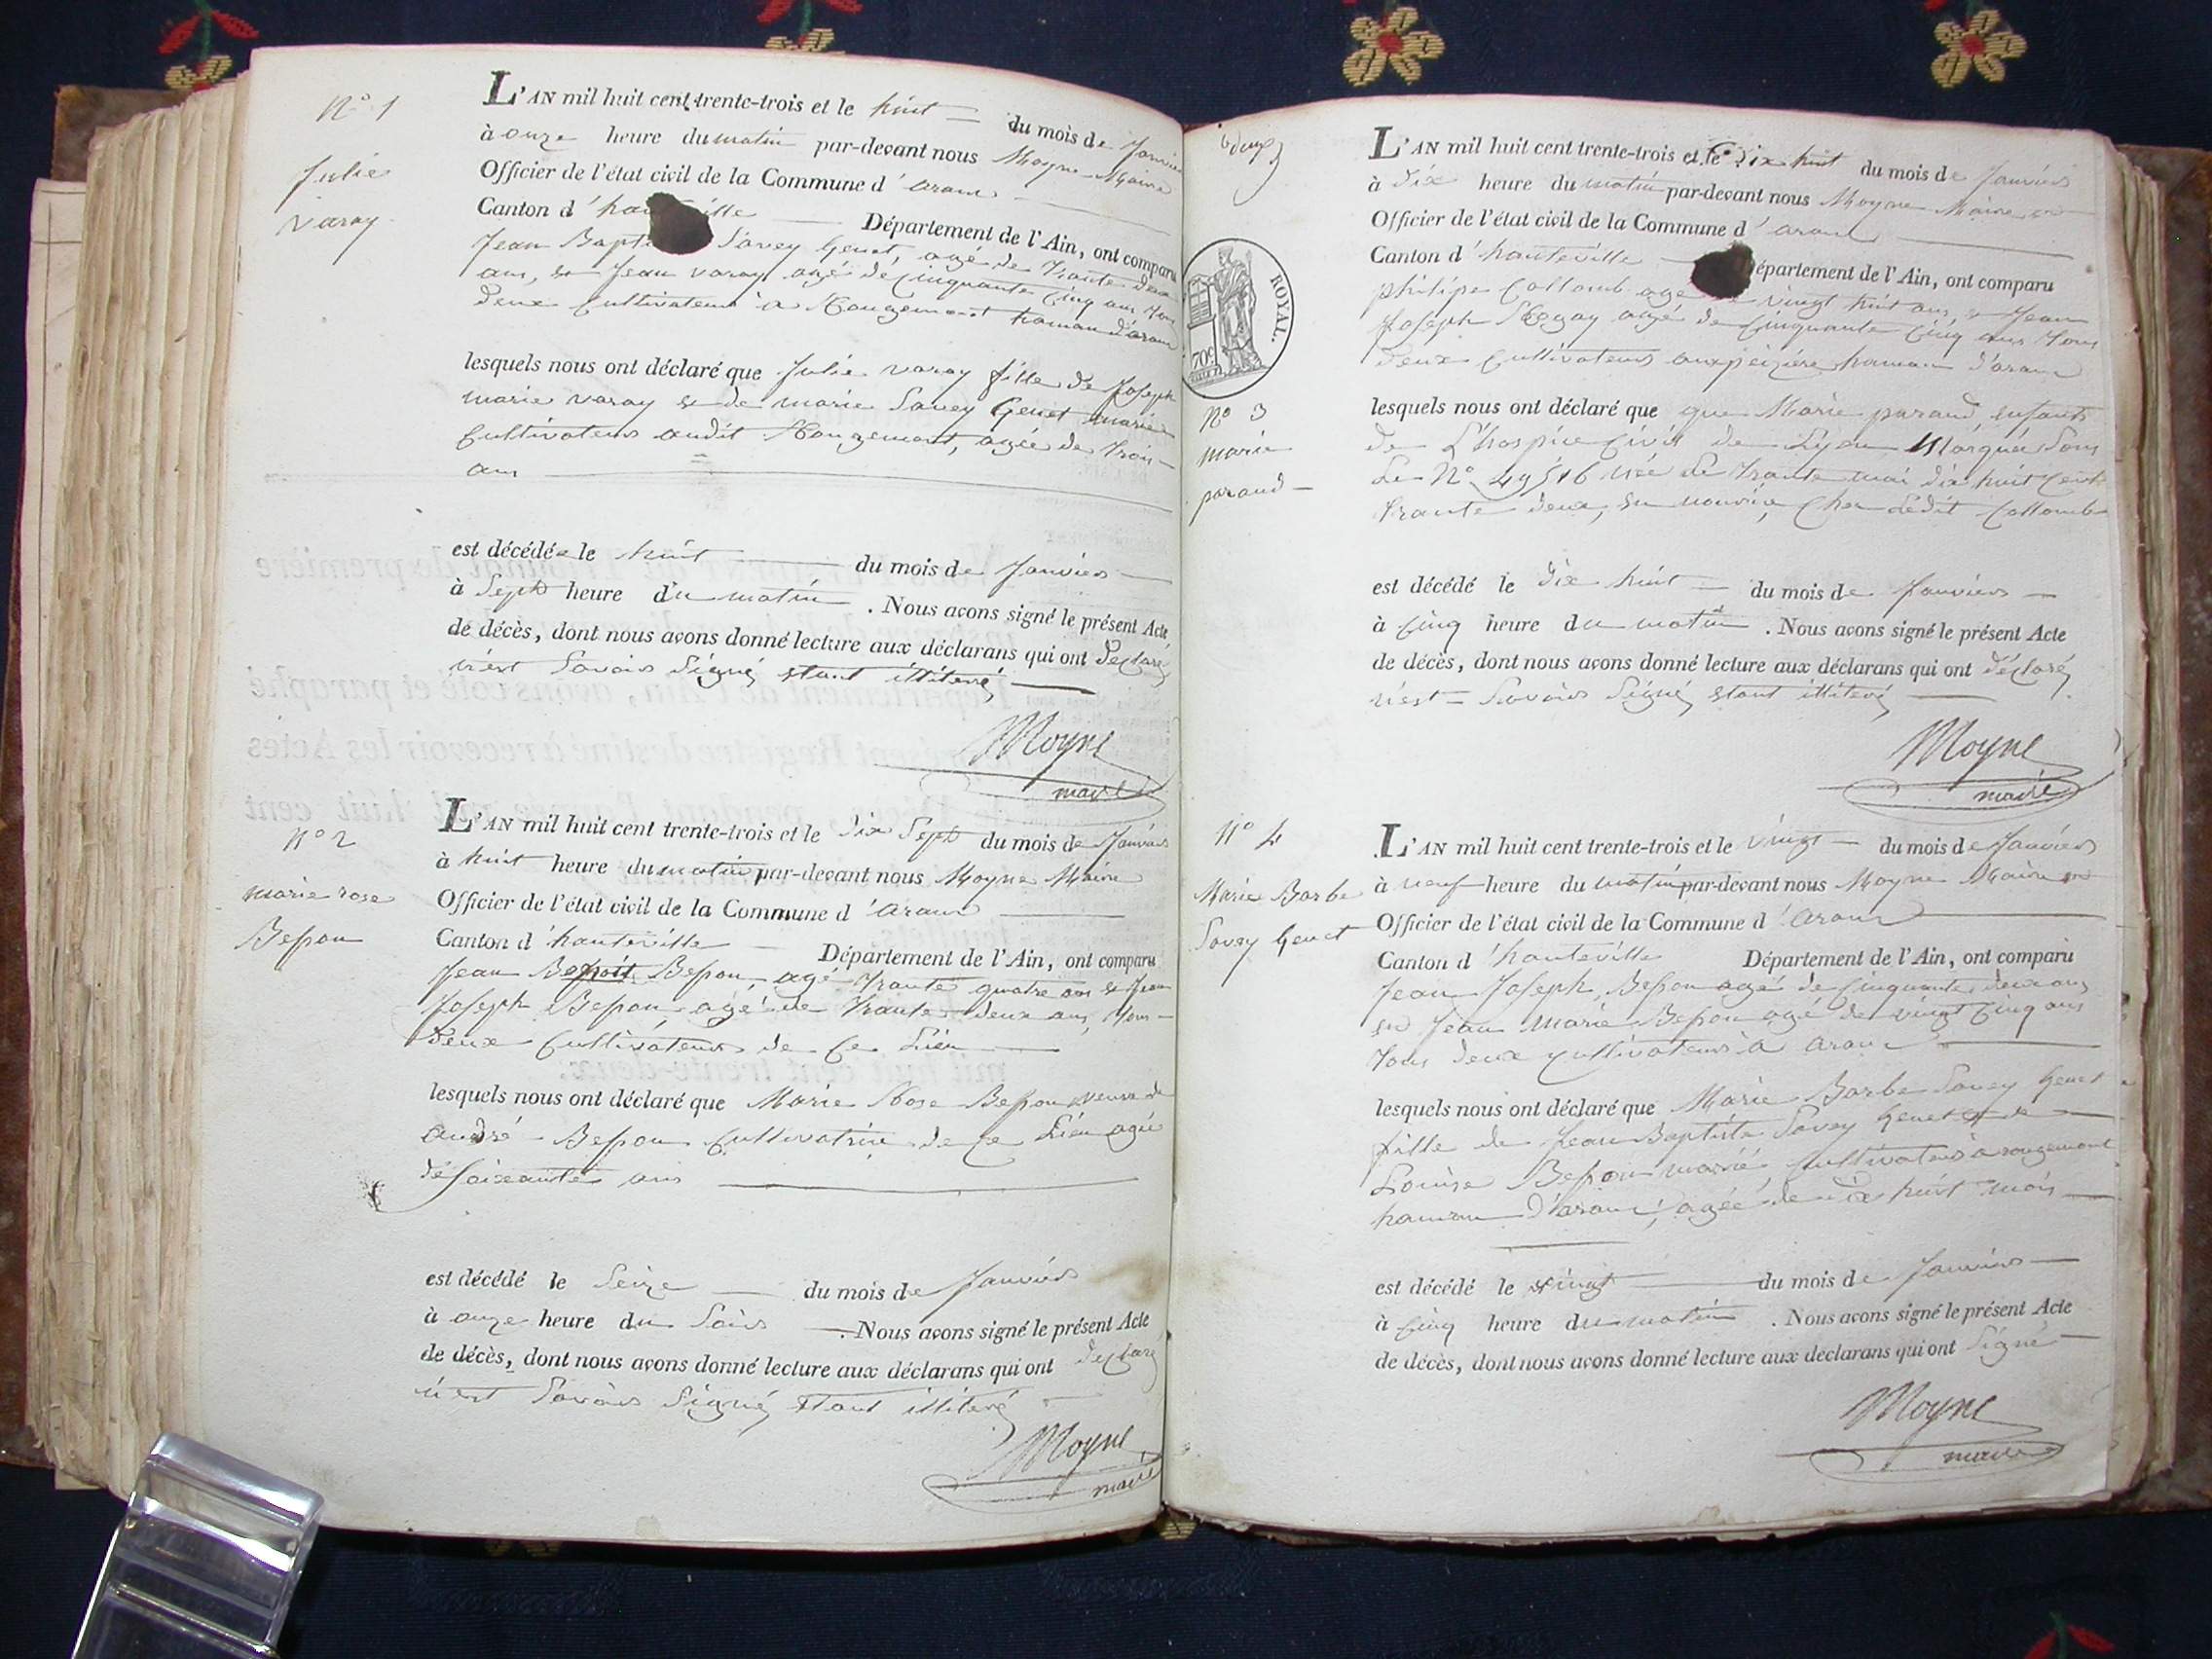 N° 1
Julie
varay
L'AN mil huit cent trente-trois et le huit du mois de Janvier
à onze heure du matin par-devant nous Moyne Maire
Officier de l'état civil de la Commune d'aranc
Canton d'hauteville Département de l'Ain, ont comparu
Jean Baptiste Savey Genet, agé de trante deux
ans, et Jean varay agé de Cinquante Cinq ans tous
deux Cultivateurs à Rougemont hamau d'aranc
lesquels nous ont déclaré que Julie varay fille de Joseph
marie varay et de marie Savey Genet mariés
Cultivateurs audit Rougemont, agée de trois
ans
est décédée le huit du mois de Janvier
à Sept heure du matin . Nous avons signé le présent Acte
de décès, dont nous avons donné lecture aux déclarans qui ont déclaré
n'est Savoir Signé, étant illiteré
Moyne
maire
N° 2
marie rose
Besson
L'AN mil huit cent trente-trois et le dix Sept du mois de Janvier
à huit heure du matin par-devant nous Moyne Maire
Officier de l'état civil de la Commune d'Aranc
Canton d'hauteville Département de l'Ain, ont comparu
Jean Benoit Besson, agé trante quatre ans et Jean
Joseph Besson, agé de trante deux ans, tous
deux Cultivateurs de Ce Lieu
lesquels nous ont déclaré que Marie Rose Besson veuve de
André Besson Cultivatrice de Ce Lieu agée
de Soixante ans
est décédé le Seize du mois de Janvier
à onze heure du Soir . Nous avons signé le présent Acte
de décès, dont nous avons donné lecture aux déclarans qui ont déclaré
n'est Savoir Signé, étant illiteré
Moyne
maire
ROYAL.
70c
N° 3
marie
paraud
L'AN mil huit cent trente-trois et le Dix huit du mois de Janvier
à dix heure du matin par-devant nous Moyne Maire
Officier de l'état civil de la Commune d'aranc
Canton d'hauteville Département de l'Ain, ont comparu
philipe Collomb agé de vingt huit ans, et Jean
Joseph agé de Cinquante Cinq ans tous
deux Cultivateurs hamau d'aranc
lesquels nous ont déclaré que que Marie paraud, enfants
de L'hospice Civil de Lyon Marquée Sous
Le N° 49516 née Le trante mai dix huit Cent
trante deux, en nourrice, Chez Ledit Collomb
est décédé le dix huit du mois de Janvier
à Cinq heure du matin . Nous avons signé le présent Acte
de décès, dont nous avons donné lecture aux déclarans qui ont déclaré
n'est Savoir Signé, étant illiteré
Moyne
maire
N° 4
Marie Barbe
Savey Genet
L'AN mil huit cent trente-trois et le vingt du mois de Janvier
à neuf heure du matin par-devant nous Moyne Maire
Officier de l'état civil de la Commune d'Aranc
Canton d'hauteville Département de l'Ain, ont comparu
Jean Joseph Besson agé de Cinquante deux ans
et Jean Marie Besson agé de vingt Cinq ans
tous deux cultivateurs à aranc
lesquels nous ont déclaré que Marie Barbe Savey Genet
fille de Jean Baptiste Savey Genet et de
Louise Besson mariés, Cultivateurs à rougemont
hamau d'aranc, agée de dix huit mois
est décédé le vingt du mois de Janvier
à Cinq heure du matin . Nous avons signé le présent Acte
de décès, dont nous avons donné lecture aux déclarans qui ont Signé
Moyne
maire